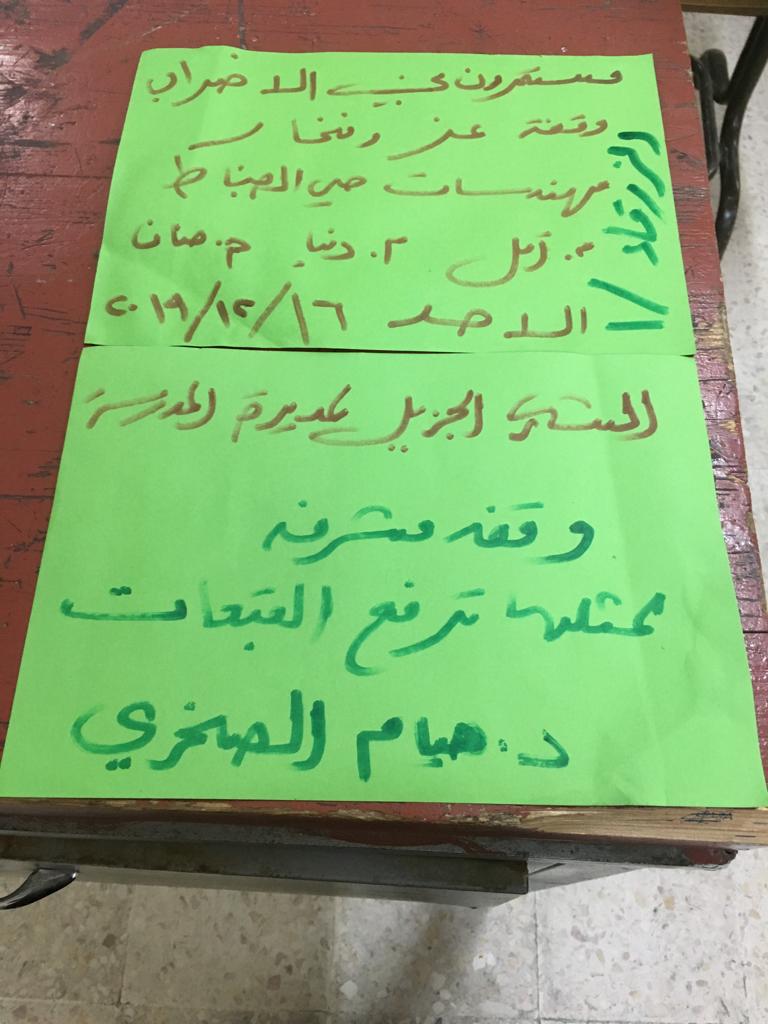 مستمرون في الاضراب
وقفة عز وفخار
مهندسات حي الضباط
م. أمل م. دنيا م. حنان
الاحد ٢٠١٩/١٢/١٦
الزرقاء / ١
الشكر الجزيل لمديرة المدرسة
وقفه مشرفه
لمثلها ترفع القبعات
د. هيام الصخري